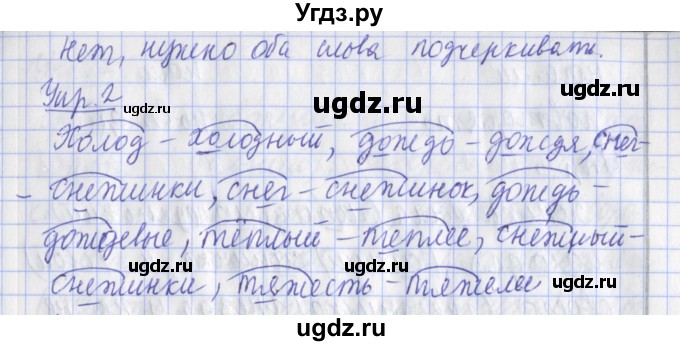 Угдз.ру
Нет, нужно оба слова подчеркивать.
ugdz.ru ugdz.ru
Упр. 2
ugdz.ru
Холод – холодный, дождь – дождя, снег –
– снежинки, снег – снежинок, дождь –
ugdz.ru ugdz.ru
дождевые, тёплый – теплее, снежный –
ugdz.ru ugdz.ru
снежинки, тяжесть – тяжелее
ugdz.ru